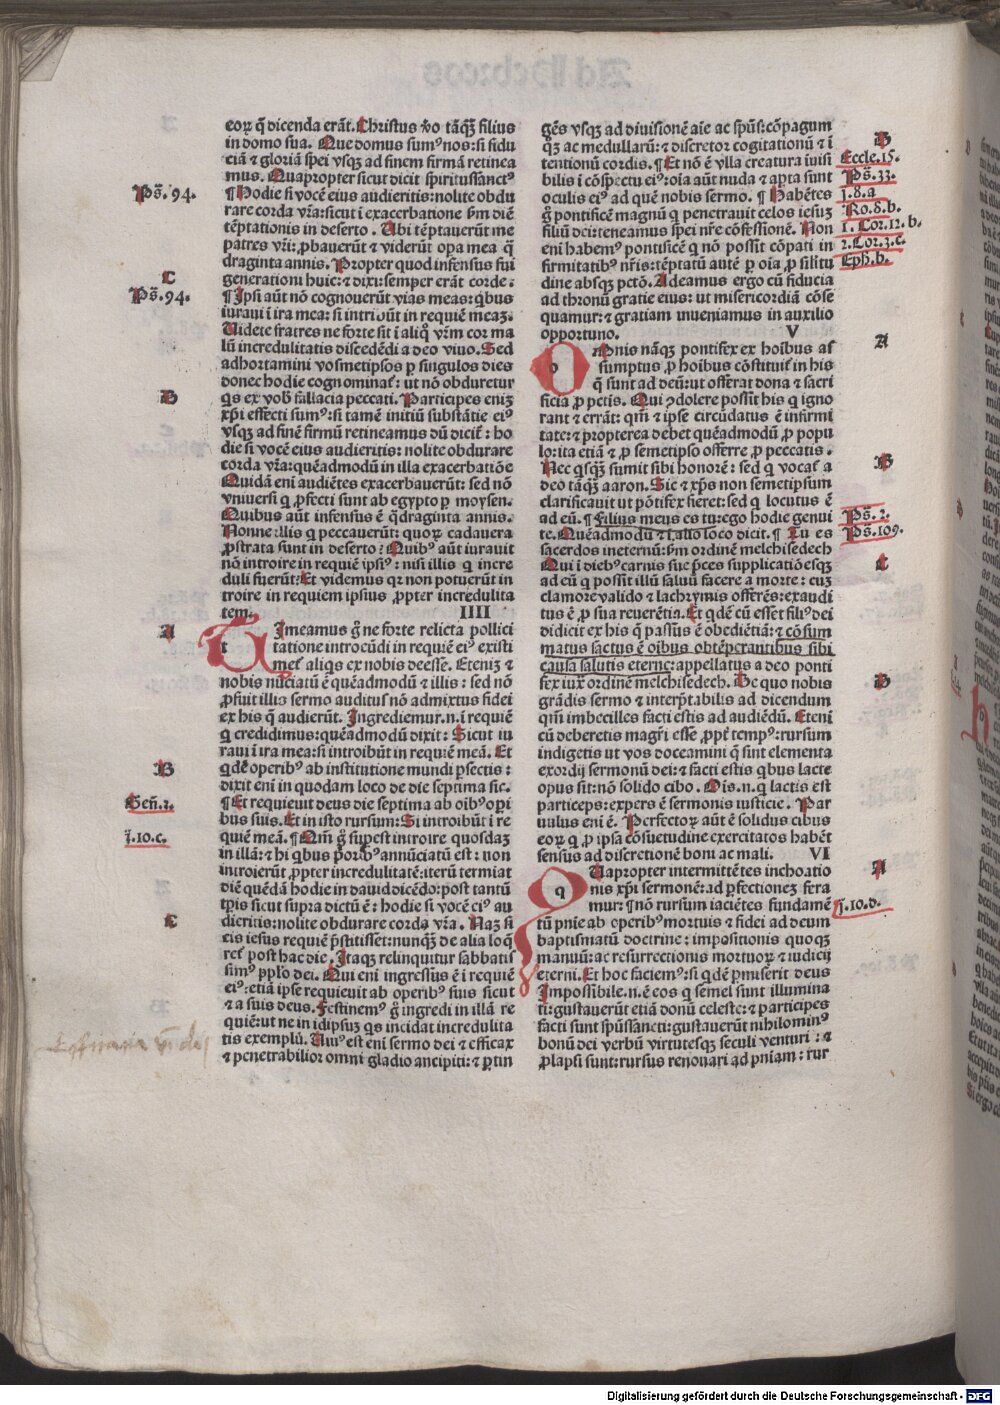 eoꝝ q̃ dicenda erãt. Christus ꝟo tãq̃ filius
in domo sua. Que domus sumꝰ nos: si fidu
ciã ⁊ gloriã spei vsqꝫ ad finem firmã retinea
mus. Quapropter sicut dicit spiritussanctꝰ
Ps̃. 94.
¶ Hodie si vocẽ eius audieritis: nolite obdu
rare corda vr̃a: sicut ĩ exacerbatione ẜm diẽ
tẽptationis in deserto. Ubi tẽptauerũt me
patres vr̃i: ꝓbauerũt ⁊ viderũt opa mea q̃
draginta annis. Propter quod infensus fui
C
generationi huic: ⁊ dixi: semper erãt corde.
Ps̃. 94.
¶ Ipsi aũt nõ cognouerũt vias meas: qbus
iuraui ĩ ira mea: si introibũt in requiẽ meaꝫ.
Uidete fratres ne forte sit ĩ aliqͦ vr̃m cor ma
lũ incredulitatis discedẽdi a deo viuo. Sed
adhortamini vosmetipsos ꝑ singulos dies
donec hodie cognominat᷑: ut nõ obduretur
D
qs ex vob̃ fallacia peccati. Participes eniꝫ
xp̃i effecti sumꝰ: si tamẽ initiũ substãtie eiꝰ
vsqꝫ ad finẽ firmũ retineamus dũ dicit᷑: ho
die si vocẽ eius audieritis: nolite obdurare
corda vr̃a: quẽadmodũ in illa exacerbatiõe
Quidã eni audiẽtes exacerbauerũt: sed nõ
vniuersi q ꝓfecti sunt ab egypto ꝑ moysen.
Quibus aũt infensus ẽ q̃draginta annis.
Nonne illis q peccauerũt: quoꝝ cadauera
ꝓstrata sunt in deserto? Quibꝰ aũt iurauit
nõ introire in requiẽ ipsiꝰ: nisi illis q incre
duli fuerũt? Et videmus qꝛ non potuerũt in
troire in requiem ipsius ꝓpter incredulita
tem. IIII
A
t TJmeamus g̃ ne forte relicta pollici
tatione introeũdi in requiẽ eiꝰ existi
met᷑ aliqs ex nobis deesse. Eteniꝫ ⁊
nobis nũciatũ ẽ quẽadmodũ ⁊ illis: sed nõ
ꝓfuit illis sermo auditus nõ admixtus fidei
ex his q̃ audierũt. Ingrediemur .n. ĩ requiẽ
q credidimus: quẽadmodũ dixit: Sicut iu
raui ĩ ira mea: si introibũt in requiẽ meã. Et
B
qdẽ operibꝰ ab institutione mundi ꝑfectis:
dixit eni in quodam loco de die septima sic.
Gen̄. 2.
¶ Et requieuit deus die septima ab oĩbꝰ opi
bus suis. Et in isto rursum: Si introibũt ĩ re
J. 10. c.
quiẽ meã. ¶ Qm̃ g̃ supest introire quosdaꝫ
in illã: ⁊ hi qbus p̃oribꝰ annũciatũ est: non
introierũt ꝓpter incredulitatẽ: iterũ termiat
diẽ quẽdã hodie in dauid dicẽdo: post tantũ
tꝑis sicut supra dictũ ẽ: hodie si vocẽ eiꝰ au
C
dieritis: nolite obdurare corda vr̃a. Naꝫ si
eis iesus requiẽ p̃stitisset: nunq̃ de alia loq̃
ret᷑ post hac die. Itaqꝫ relinquitur sabbatis
simꝰ pplo dei. Qui eni ingressus ẽ ĩ requiẽ
eiꝰ: etiã ipse requieuit ab operibꝰ suis sicut
⁊ a suis deus. Festinemꝰ g̃ ingredi in illã re
quiẽ: ut ne in idipsuꝫ qs incidat incredulita
tis exemplũ. Uiuꝰ est eni sermo dei ⁊ efficax
⁊ penetrabilior omni gladio ancipiti: ⁊ ꝑtin
gẽs vsqꝫ ad diuisionẽ aĩe ac spũs: cõpagum
B
qꝫ ac medullarũ: ⁊ discretor cogitationũ ⁊ ĩ
Eccle. 15.
tentionũ cordis. ¶ Et nõ ẽ vlla creatura ĩuisi
Ps̃. 33.
bilis ĩ cõspectu eiꝰ: oĩa aũt nuda ⁊ aꝑta sunt
J. 8. a
oculis eiꝰ ad quẽ nobis sermo. ¶ Habẽtes
Ro. 8. b.
g̃ pontificẽ magnũ q penetrauit celos iesuꝫ
1. Cor. 12. b.
filiũ dei: teneamus spei nr̃e cõfessionẽ. Non
2. Cor. 3. c.
eni habemꝰ pontificẽ q nõ possit cõpati in
Eph. b.
firmitatibꝰ nr̃is: tẽptatũ autẽ ꝑ oĩa ꝓ silitu
dine absqꝫ pctõ. Adeamus ergo cũ fiducia
ad thronũ gratie eius: ut misericordiã cõse
quamur: ⁊ gratiam inueniamus in auxilio
opportuno. V
A
o OMnis nãqꝫ pontifex ex hoĩbus as
sumptus ꝓ hoĩbus cõstituit᷑ in his
q̃ sunt ad deũ: ut offerat dona ⁊ sacri
ficia ꝓ pctis. Qui ↄdolere possit his q igno
rant ⁊ errãt: qm̃ ⁊ ipse circũdatus ẽ infirmi
tate: ⁊ ꝓpterea debet quẽadmodũ ꝓ popu
lo: ita etiã ⁊ ꝓ semetipso offerre ꝓ peccatis.
B
Nec qsqꝫ sumit sibi honorẽ: sed q vocat᷑ a
deo tãqꝫ aaron. Sic ⁊ xp̃s non semetipsum
clarificauit ut põtifex fieret: sed q locutus ẽ
Ps̃. 2.
ad eũ. ¶ Filius meus es tu: ego hodie genui
Ps̃. 109.
te. Quẽadmodũ ⁊ ĩ alio loco dicit. ¶ Tu es
sacerdos ineternũ: ẜm ordinẽ melchisedech
C
Qui ĩ diebꝰ carnis sue p̃ces supplicatiõesqꝫ
ad eũ q possit illũ saluũ facere a morte: cuꝫ
clamore valido ⁊ lachrymis offerẽs: exaudi
tus ẽ ꝓ sua reuerẽtia. Et qdẽ cũ esset filiꝰ dei
didicit ex his q̃ passus ẽ obediẽtiã: ⁊ cõsum
matus factus ẽ oĩbus obtẽperantibus sibi
causa salutis eterne: appellatus a deo ponti
D
fex iuxꝰ ordinẽ melchisedech. De quo nobis
grãdis sermo ⁊ interp̃tabilis ad dicendum
qm̃ imbecilles facti estis ad audiẽdũ. Eteni
cũ deberetis magr̃i esse ꝓpt᷑ tempꝰ: rursum
indigetis ut vos doceamini q̃ sint elementa
exordij sermonũ dei: ⁊ facti estis qbus lacte
opus sit: nõ solido cibo. Ois .n. q lactis est
particeps: expers ẽ sermonis iusticie. Par
uulus eni ẽ. Perfectoꝝ aũt ẽ solidus cibus
eoꝝ q ꝓ ipsa cõsuetudine exercitatos habẽt
sensus ad discretionẽ boni ac mali. VI
A
q QUapropter intermittẽtes inchoatio
nis xp̃i sermonẽ: ad ꝑfectioneꝫ fera
J. 10. d.
mur: ¶ nõ rursum iaciẽtes fundamẽ
tũ pnie ab operibꝰ mortuis ⁊ fidei ad deum
baptismatũ doctrine: impositionis quoqꝫ
manuũ: ac resurrectionis mortuoꝝ ⁊ iudicij
eterni. Et hoc faciemꝰ: si qdẽ ꝑmiserit deus
Impossibile .n. ẽ eos q semel sunt illumina
ti: gustauerũt etiã donũ celeste: ⁊ participes
facti sunt spũssancti: gustauerũt nihilominꝰ
bonũ dei verbũ virtutesqꝫ seculi venturi: ⁊
ꝓlapsi sunt: rursus renouari ad pniam: rur
Digitalisierung gefördert durch die Deutsche Forschungsgemeinschaft - DFG